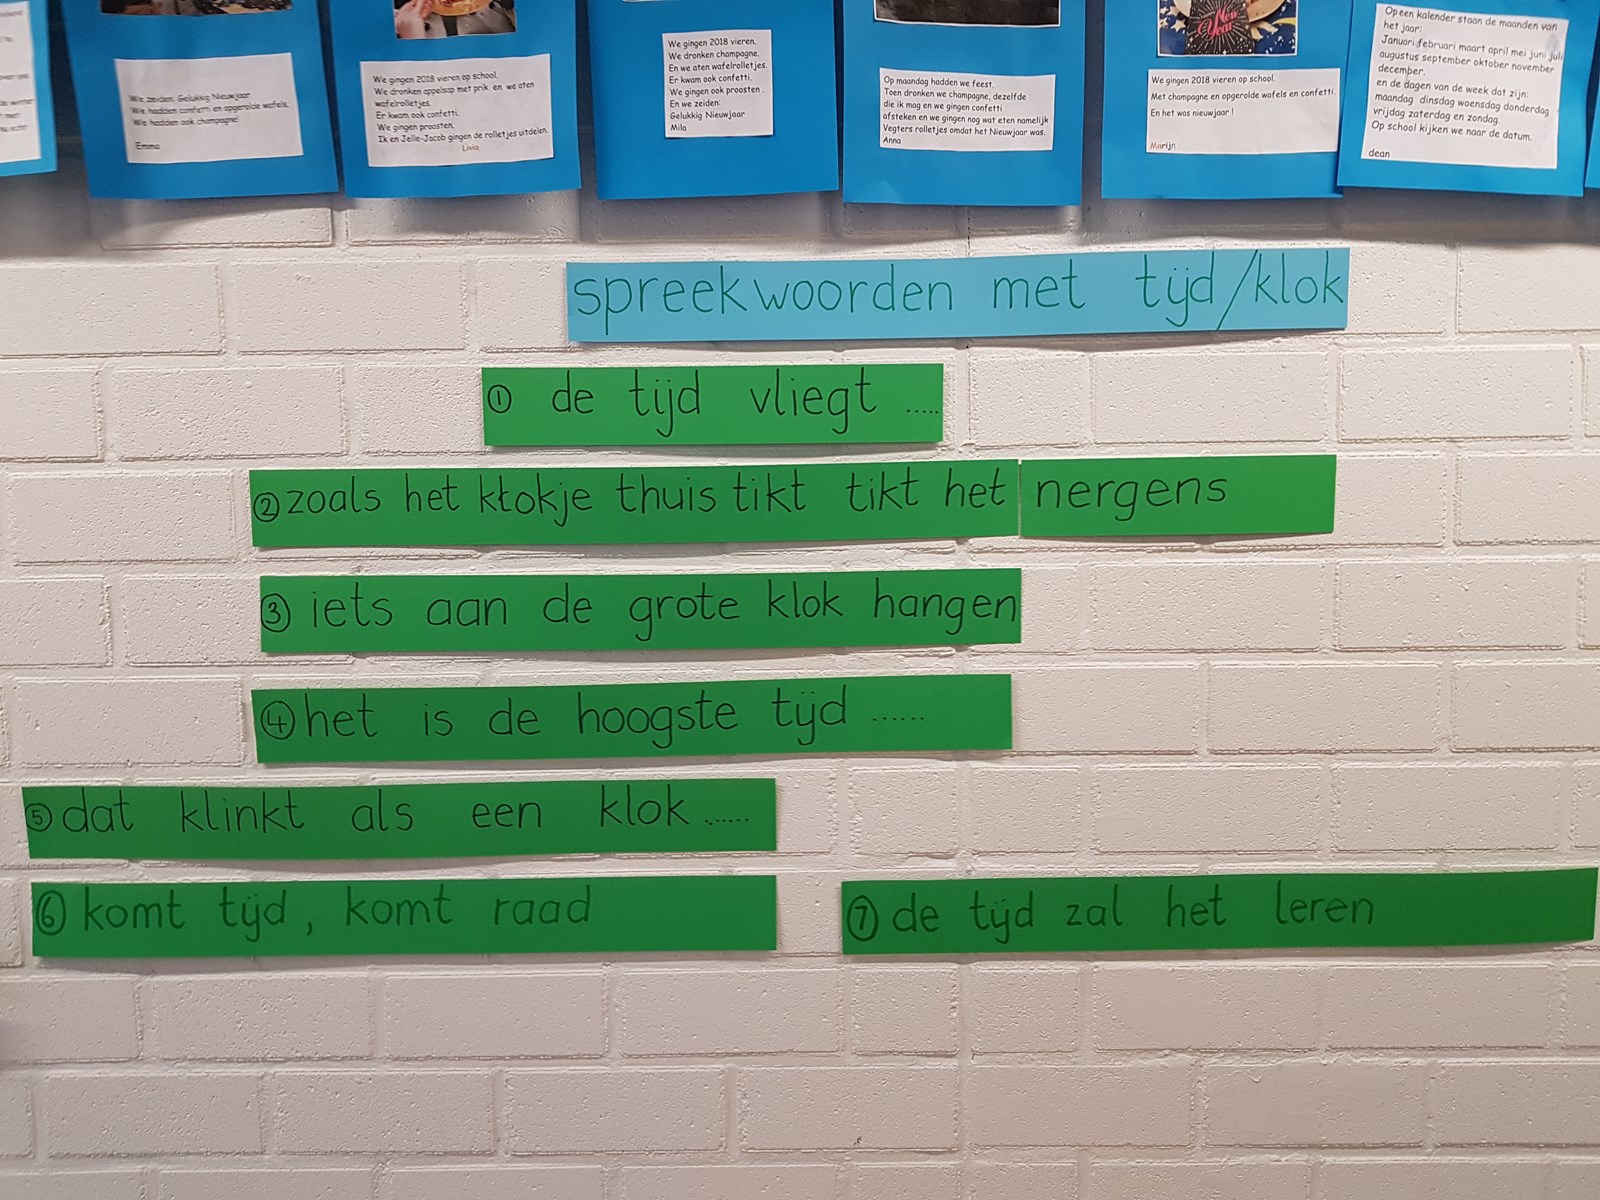 We zeiden: Gelukkig Nieuwjaar
We hadden confetti en opgerolde wafels.
We hadden ook champagne!
Emma
We gingen 2018 vieren op school.
We dronken appelsap met prik en we aten
wafelrolletjes.
Er kwam ook confetti.
We gingen proosten.
Ik en Jelle-Jacob gingen de rolletjes uitdelen.
Livia
We gingen 2018 vieren,
We dronken champagne,
En we aten wafelrolletjes.
Er kwam ook confetti.
We gingen ook proosten .
En we zeiden:
Gelukkig Nieuwjaar
Mila
Op maandag hadden we feest.
Toen dronken we champagne, dezelfde
die ik mag en we gingen confetti
afsteken en we gingen nog wat eten namelijk
Vegters rolletjes omdat het Nieuwjaar was.
Anna
New
Year
We gingen 2018 vieren op school.
Met champagne en opgerolde wafels en confetti.
En het was nieuwjaar !
Marijn
Op een kalender staan de maanden van
het jaar:
Januari februari maart april mei juni juli
augustus september oktober november
december.
en de dagen van de week dat zijn:
maandag dinsdag woensdag donderdag
vrijdag zaterdag en zondag.
Op school kijken we naar de datum.
dean
spreekwoorden met tijd/klok
① de tijd vliegt .....
② zoals het klokje thuis tikt tikt het nergens
③ iets aan de grote klok hangen
④ het is de hoogste tijd ......
⑤ dat klinkt als een klok ......
⑥ komt tijd, komt raad
⑦ de tijd zal het leren